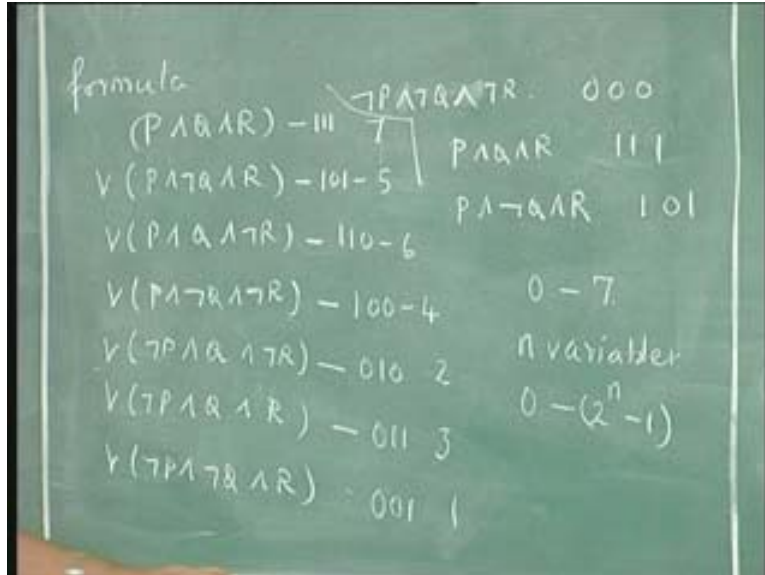 formula
(P∧Q∧R) – 111 7
∨(P∧¬Q∧R) – 101 – 5
∨(P∧Q∧¬R) – 110 – 6
∨(P∧¬Q∧¬R) – 100 – 4
∨(¬P∧Q∧¬R) – 010 2
∨(¬P∧Q∧R) – 011 3
∨(¬P∧¬Q∧R) 001 1
¬P∧¬Q∧¬R. 000
P∧Q∧R 111
P∧¬Q∧R 101
0 – 7
n variables
0 – (2ⁿ – 1)